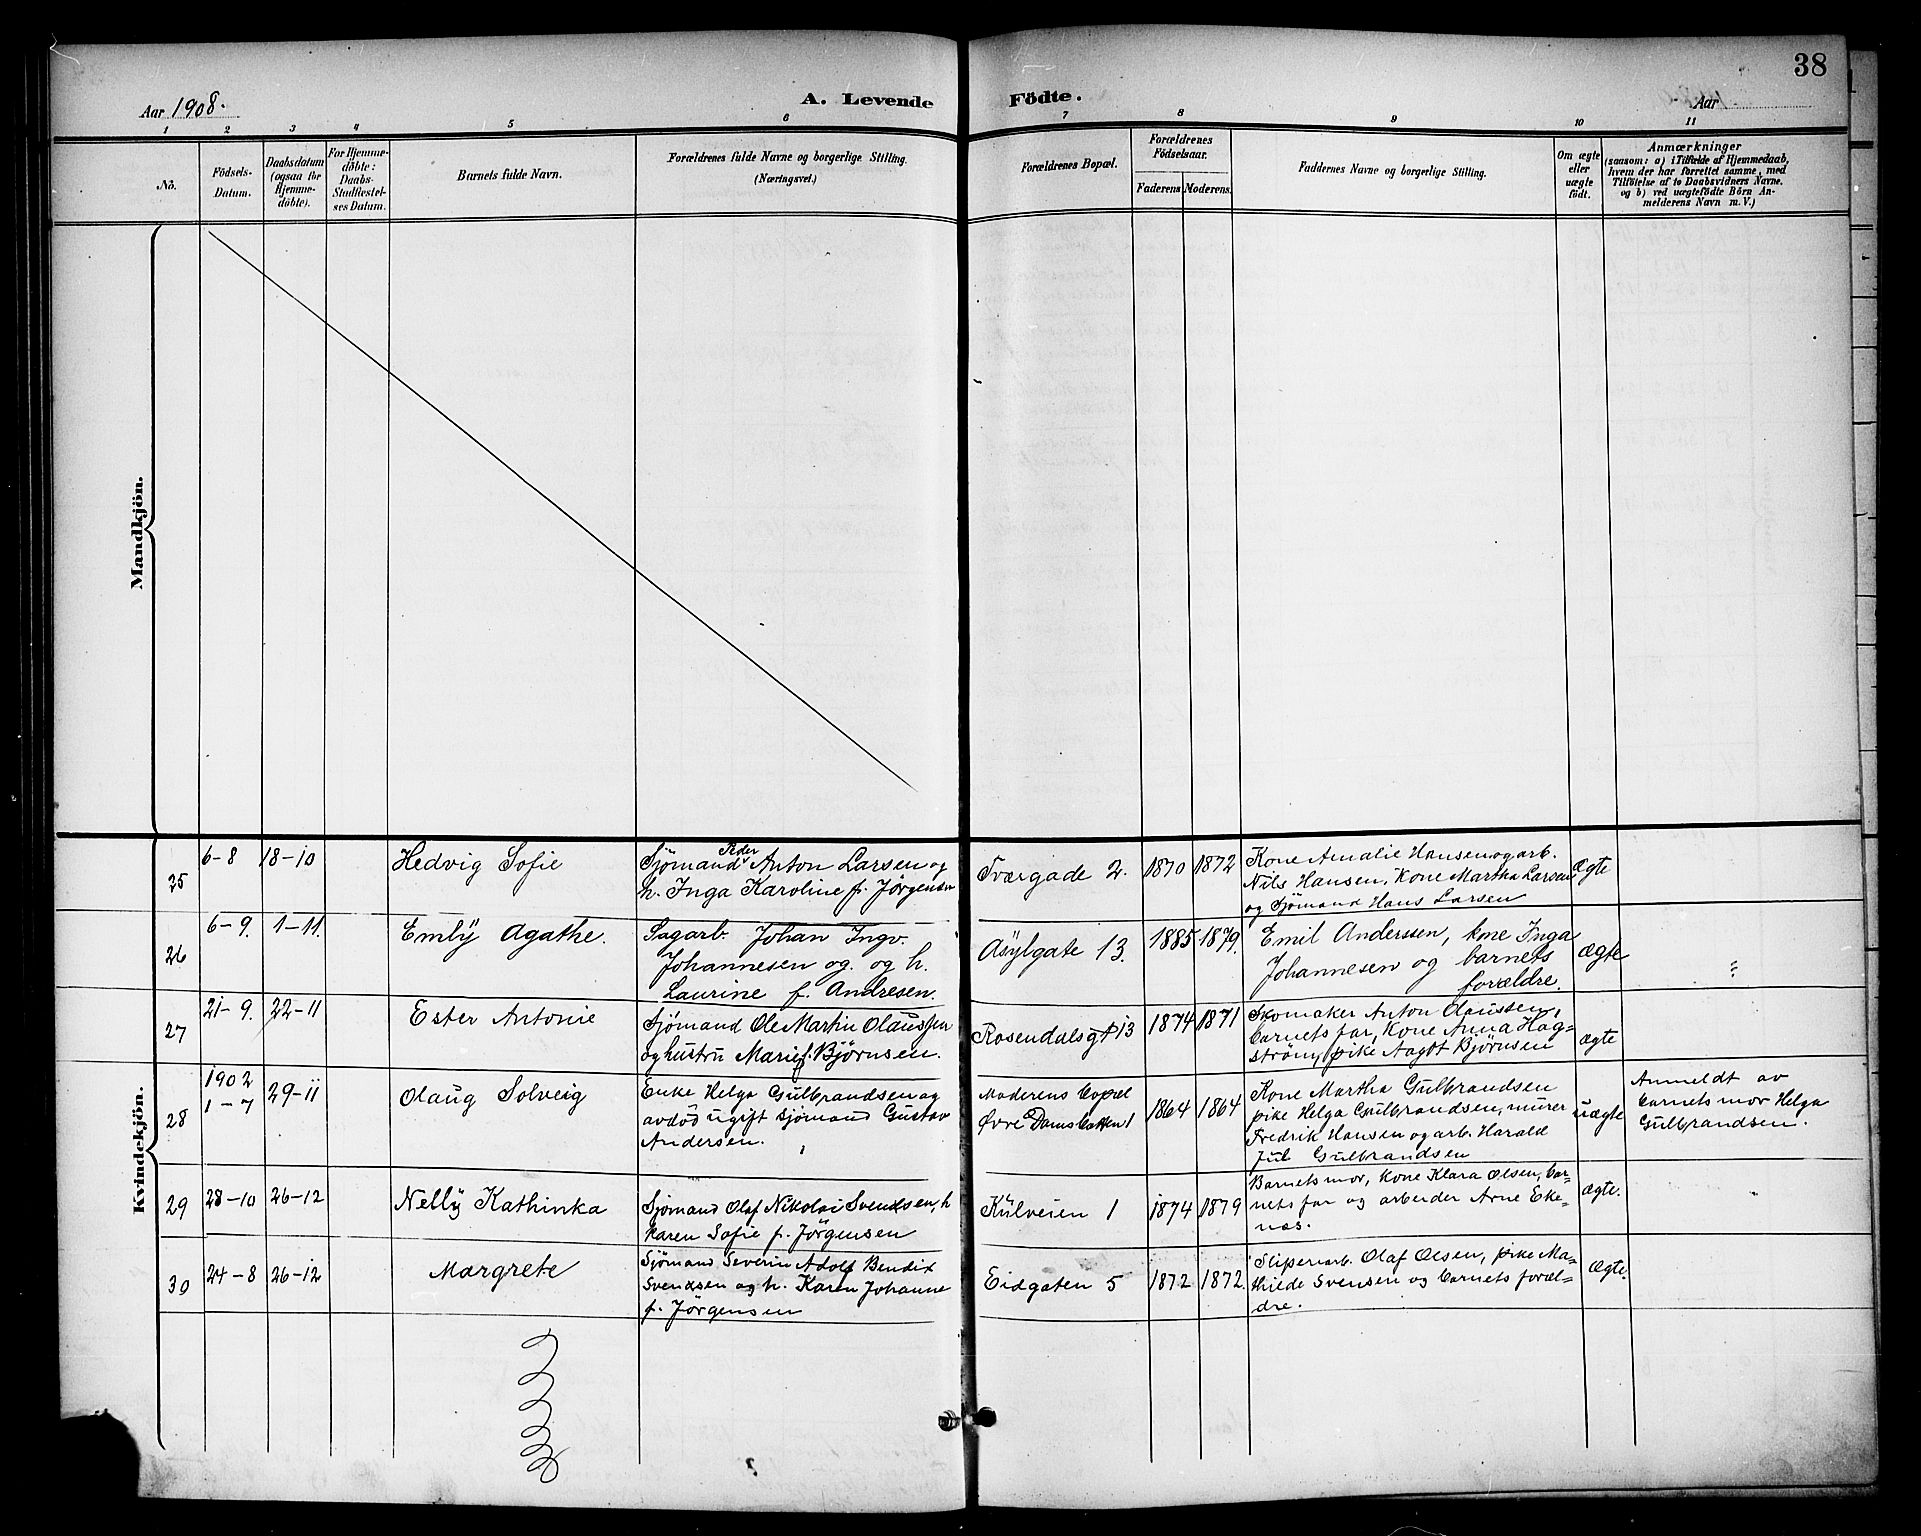 38
Aar 1908.
A. Levende Födte.
Aar
1 2 3 4 5 6 7 8 9 10 11
No.
Födsels-
Datum.
Daabsdatum
(ogsaa for
Hjemme-
döbte).
For Hjemme-
döbte:
Daabs-
Stadfæstel-
ses Datum.
Barnets fulde Navn.
Forældrenes fulde Navne og borgerlige Stilling.
(Næringsvei.)
Forældrenes Bopæl.
Forældrenes
Födselsaar.
Faderens Moderens.
Faddernes Navne og borgerlige Stilling.
Om ægte
eller
uægte
födt.
Anmærkninger
(saasom: a) i Tilfælde af Hjemmedaab,
hvem der har forrettet samme, med
Tilföielse af to Daabsvidners Navne.
og b) ved uægtefödte Börn An-
melderens Navn m. V.)
Mandkjön.
Kvindekjön.
25
6-8
18-10
Hedvig Sofie
Peder
Sjömand Anton Larsen og
h. Inga Karoline f. Jörgensen
Tværgade 2.
1870
1872
Kone Amalie Hansen og arb.
Nils Hansen, Kone Martha Larsen
og Sjömand Hans Larsen
ægte
26
6-9.
1-11.
Emly Agathe.
Sagarb. Johan Ingv.
Johannesen og. og h.
Laurine f. Andresen.
Asylgate 13.
1885
1879.
Emil Anderssen, kone Inga
Johannesen og barnets
forældre.
ægte
"
27
21-9.
22-11
Ester Antonie
Sjömand Ole Martin Olaussen
og hustru Marie f. Björnsen.
Rosendalsgt 13
1874
1871
Skomaker Anton Olaussen,
barnets far, Kone Anna Hag=
ström, pike Aagot Björnsen
ægte
28
1902
1-7
29-11
Olaug Solveig
Enke Helga Gulbrandsen og
avdöd ugift sjömand Gustav
Andersen.
Moderens bopæl
Övre Damsbakken 1
1864
1864
Kone Martha Gulbrandsen
pike Helga Gulbrandsen, murer
Fredrik Hansen og arb. Harald
Jul Gulbrandsen
uægte
Anmeldt av
barnets mor Helga
Gulbrandsen.
29
28-10
26-12
Nelly Kathinka
Sjömand Olaf Nikolai Svendsen, h
Karen Sofie f. Jörgensen
Kulveien 1
1874
1879
Barnets mor, kone Klara Olsen, bar=
nets far og arbeider Arne Eke=
nas.
ægte.
"
30
24-8
26-12
Margrete
Sjömand Severin Adolf Bendix
Svendsen og h. Karen Johanne
f. Jörgensen
Eidgaten 5
1872
1872.
Sliperiarb. Olaf Olsen, pike Ma=
thilde Svensen og barnets foræl=
dre.
ægte.